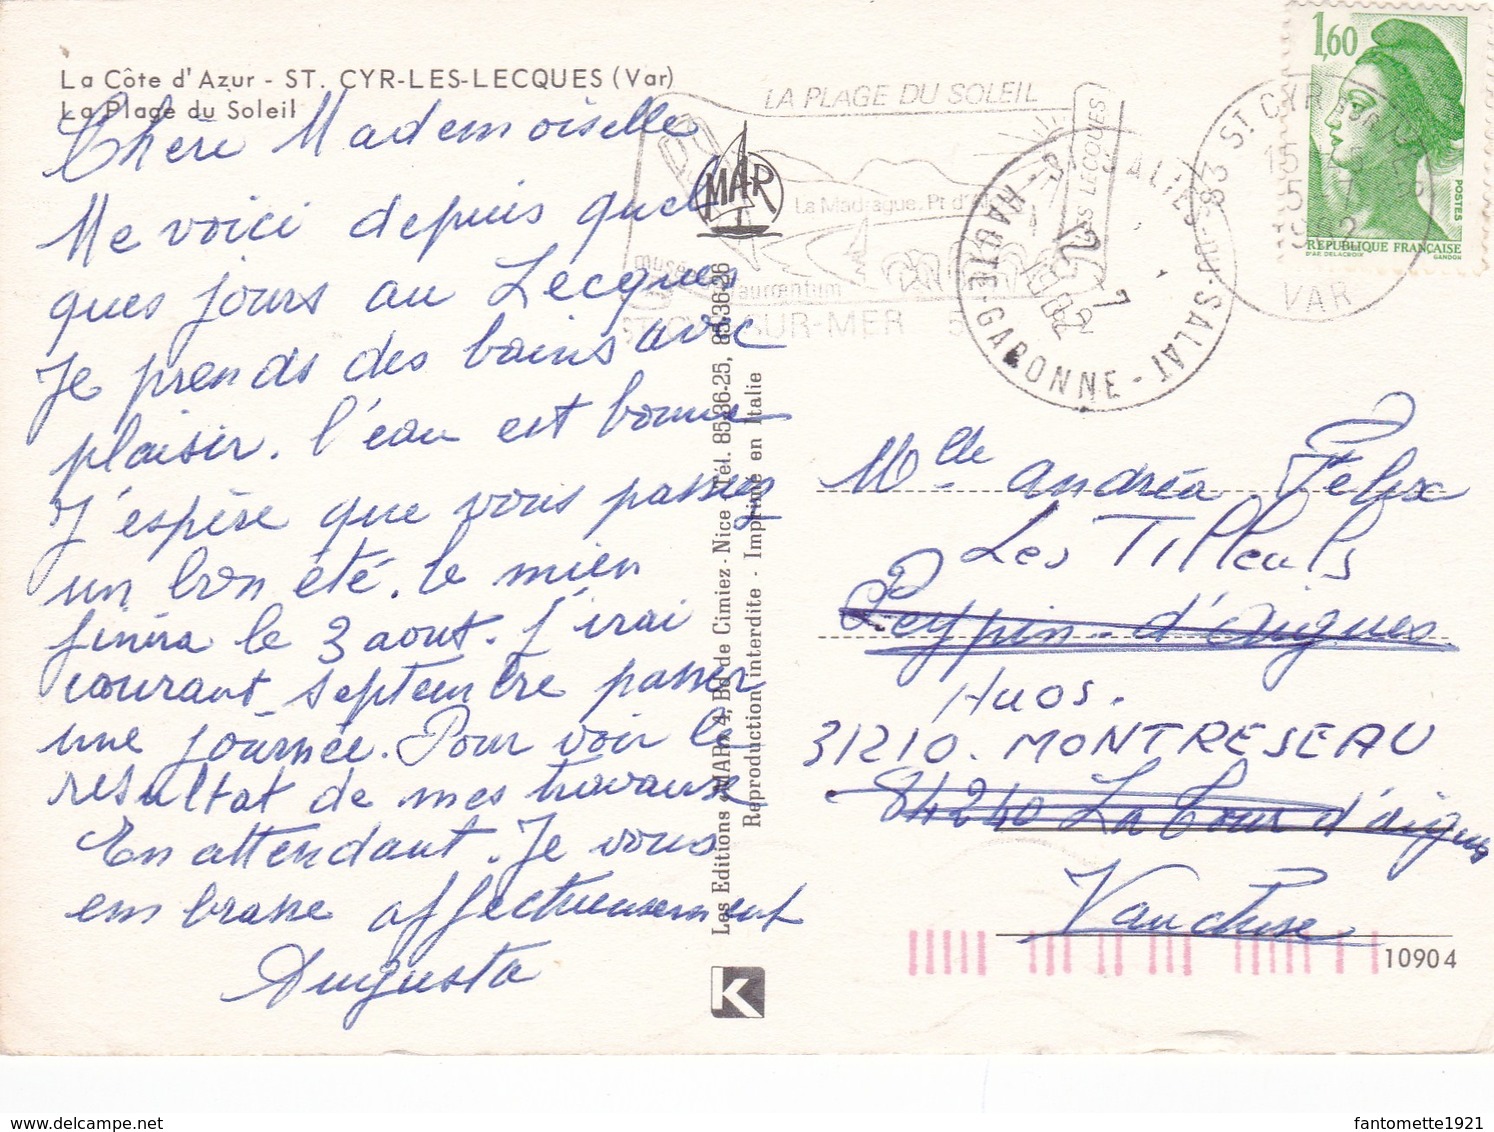 La Côte d'Azur - ST. CYR-LES-LECQUES (Var)
La Plage du Soleil
Chère Mademoiselle
Me voici depuis quel
ques jours au Lecques
Je prends des bains avec
plaisir. l'eau est bonne
J'espère que vous passez
un bon été. le mien
finira le 3 aout. J'irai
courant septembre passer
une journée. Pour voir le
resultat de mes travaux
En attendant. Je vous
embrasse affectueusement
Augusta
MAR
Les Editions «MAR» 4, Bd de Cimiez - Nice Tél. 85.36-25, 85.36-26
Reproduction interdite - Imprimé en Italie
K
LA PLAGE DU SOLEIL
LES LECQUES
La Madrague. Pt d'Al
musée
taurœntum
ST CYR SUR-MER 5
SALIES-DU-SALAT-
HAUTE-GARONNE
7
1982
83 ST CYR SUR MER
15
5 7
1982
VAR
1,60
POSTES
REPUBLIQUE FRANÇAISE
D'AP. DELACROIX GANDON
Mlle Andréa Felix
Les Tilleuls
Peypin-d'Aigues
Huos.
31210. MONTRESEAU
84240 La Tour d'aigues
Vaucluse
10904
www.delcampe.net
fantomette1921